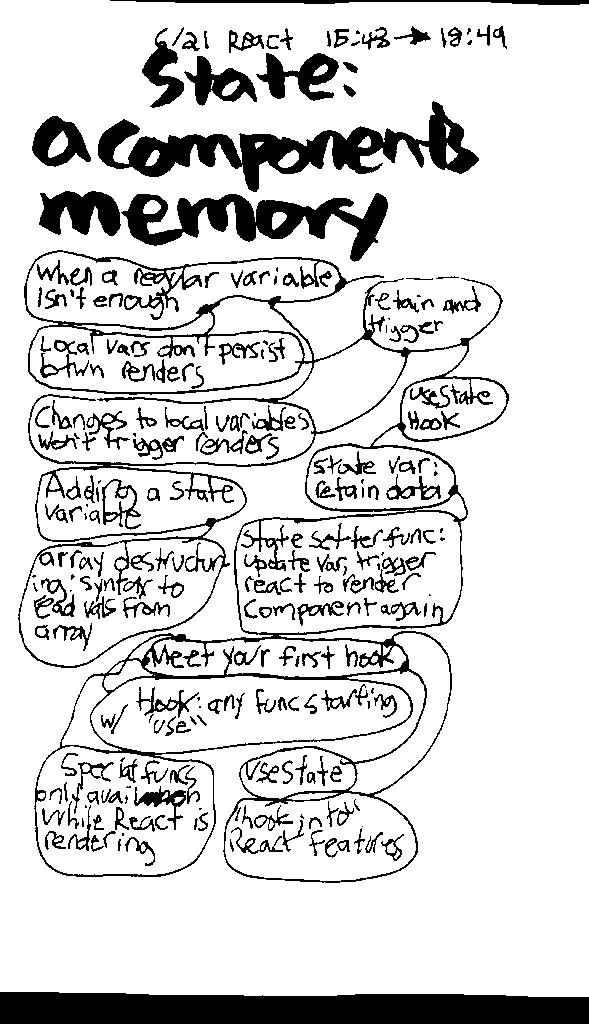 6/21 React 15:48 → 18:49
State:
a component's
memory
When a regular variable
isn't enough
retain and
trigger
Local vars don't persist
btwn renders
useState
Hook
Changes to local variables
won't trigger renders
state var:
retain data
Adding a state
variable
State setter func:
update var, trigger
react to render
component again
array destructur
ing: syntax to
read vals from
array
Meet your first hook
Hook: any func starting
w/ "use"
Special funcs
only avail when
while React is
rendering
useState
"hook into"
React features